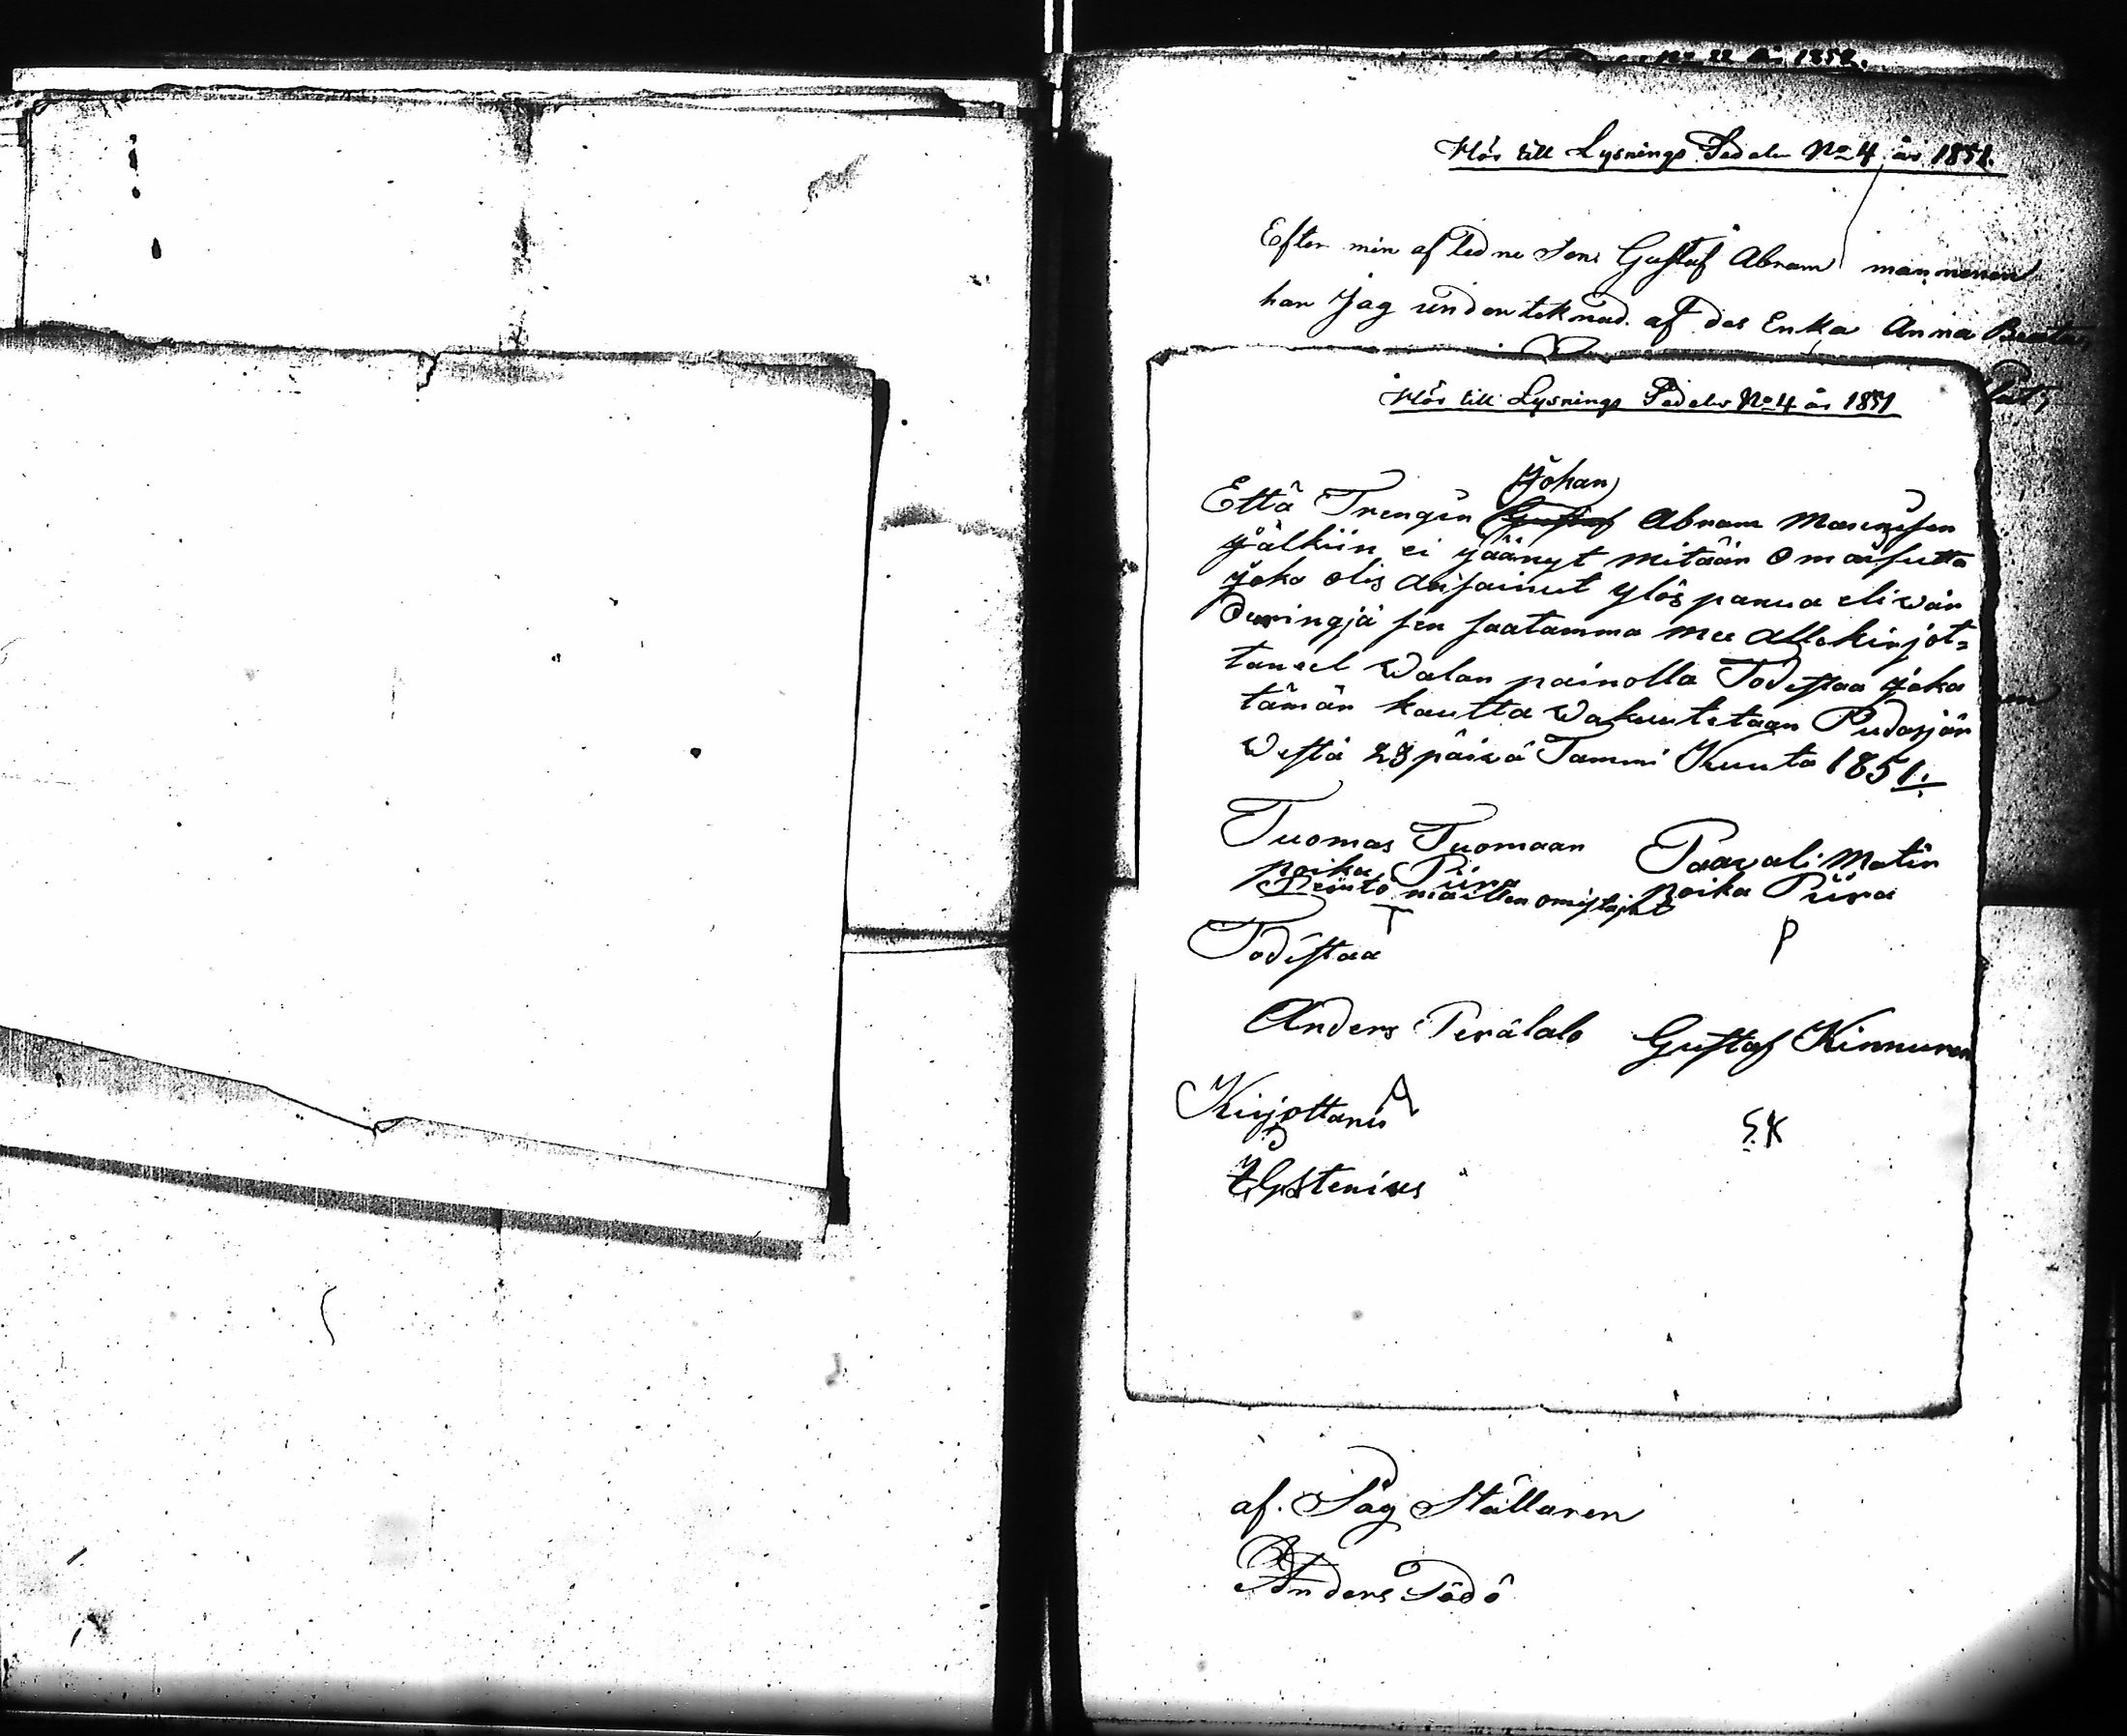 No 22 år 1852.
Hör till Lysnings Sedeln No 4 år 1851.
Efter min afledne Sons Gustaf Abram mannenen
har Jag underteknad af des Enka Anna Beata
Hör till Lysnings Sedeln No 4 år 1851
Johan
Että Trengin Gustaf Abram Manenisen
jälkiin ei jäänyt mitään Omaisutta
joka olis ansainut ylös panna eli wär
deringjä sen saatamma mee allekirjot=
tanet Walan painolla Todistaa joka
tämän kautta Wakuutetaan Pudasjär
westä 28 päivä Tammi Kuuta 1851.
Tuomas Tuomaan Paavali Matin
poika Piira poika Piira
maitten omistajat
T P
Todistaa
Anders Perälalo Gustaf Kinnunen
A
Kirjottanu
S.K
Stenius
af. Såg Ställaren
Anders Södö